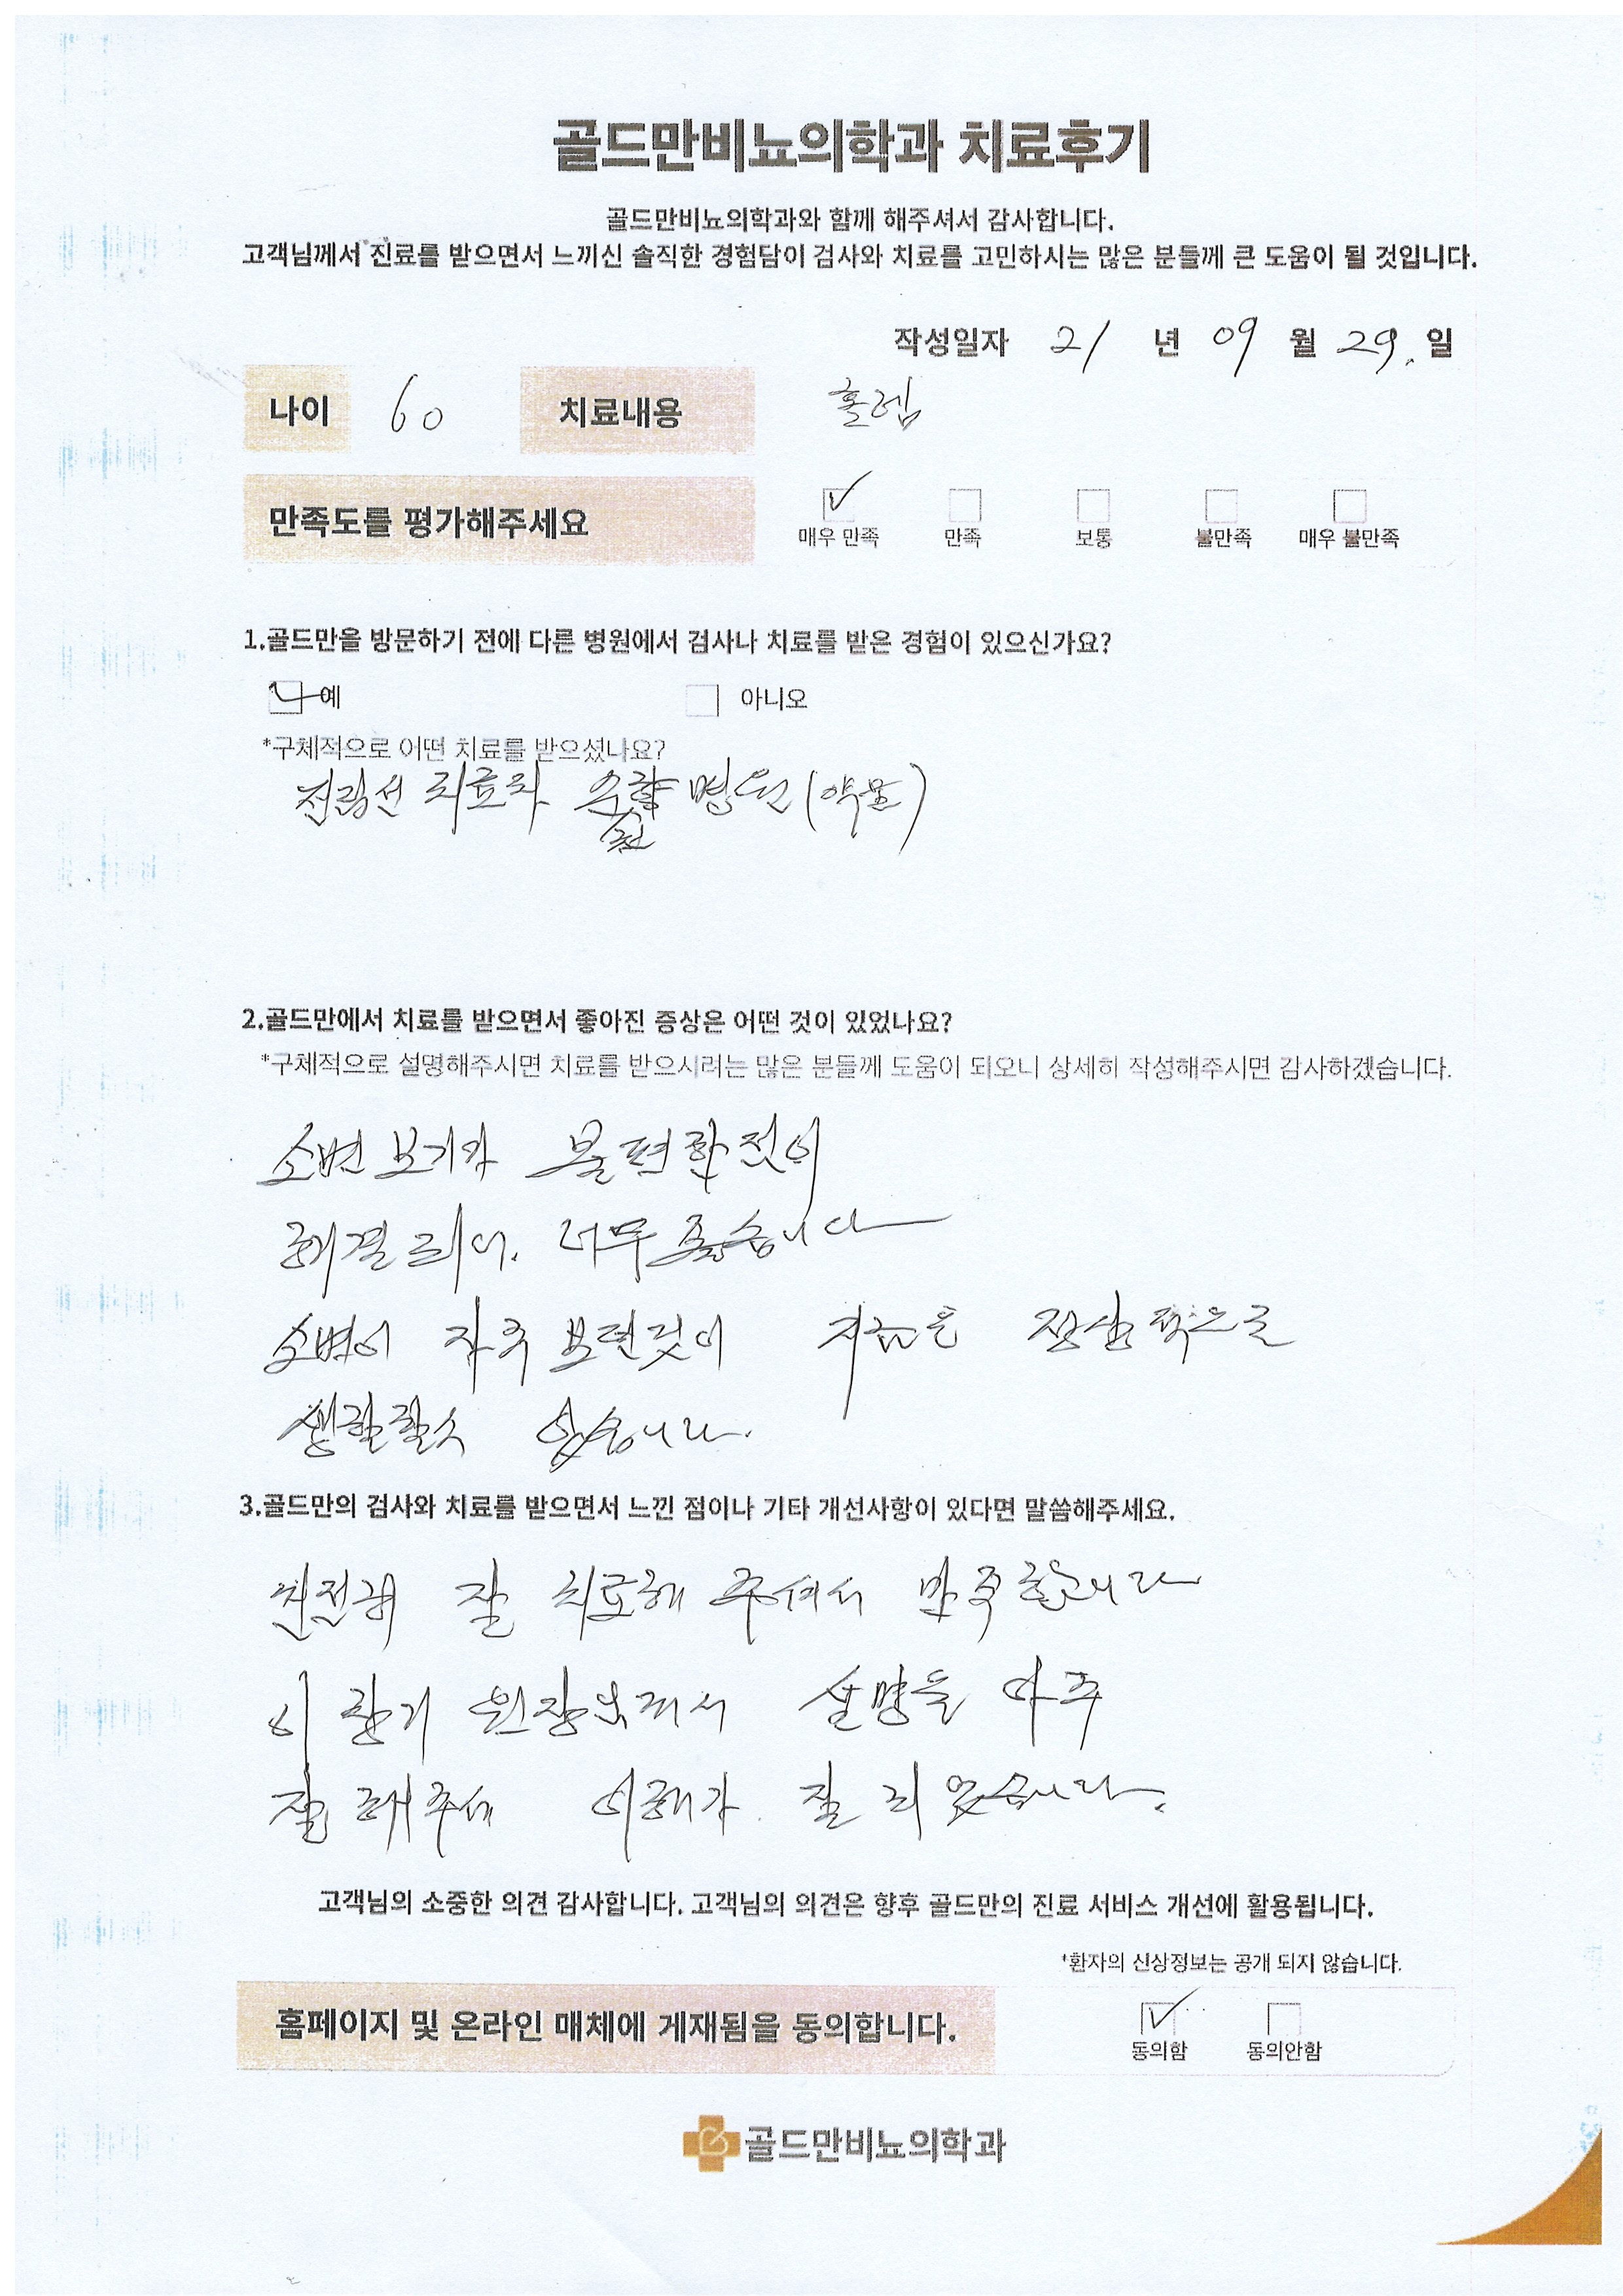 골드만비뇨의학과 치료후기
골드만비뇨의학과와 함께 해주셔서 감사합니다.
고객님께서 진료를 받으면서 느끼신 솔직한 경험담이 검사와 치료를 고민하시는 많은 분들께 큰 도움이 될 것입니다.
작성일자 21 년 09 월 29. 일
나이 60 치료내용 홀렙
만족도를 평가해주세요
매우 만족 만족 보통 불만족 매우 불만족
1.골드만을 방문하기 전에 다른 병원에서 검사나 치료를 받은 경험이 있으신가요?
예 아니오
*구체적으로 어떤 치료를 받으셨나요?
전립선 치료차 병원(약물)
2.골드만에서 치료를 받으면서 좋아진 증상은 어떤 것이 있었나요?
*구체적으로 설명해주시면 치료를 받으시려는 많은 분들께 도움이 되오니 상세히 작성해주시면 감사하겠습니다.
소변 보기가 불편한 것이
해결되니. 너무 좋습니다
소변이 자주 보던것이 지금은 정상적으로
생활할수 있습니다.
3.골드만의 검사와 치료를 받으면서 느낀 점이나 기타 개선사항이 있다면 말씀해주세요.
친절해 잘 치료해 주셔서 만족합니다
이 창기 원장님께서 설명을 아주
잘 해주셔 이해가 잘 되었습니다.
고객님의 소중한 의견 감사합니다. 고객님의 의견은 향후 골드만의 진료 서비스 개선에 활용됩니다.
*환자의 신상정보는 공개 되지 않습니다.
홈페이지 및 온라인 매체에 게재됨을 동의합니다.
동의함 동의안함
골드만비뇨의학과